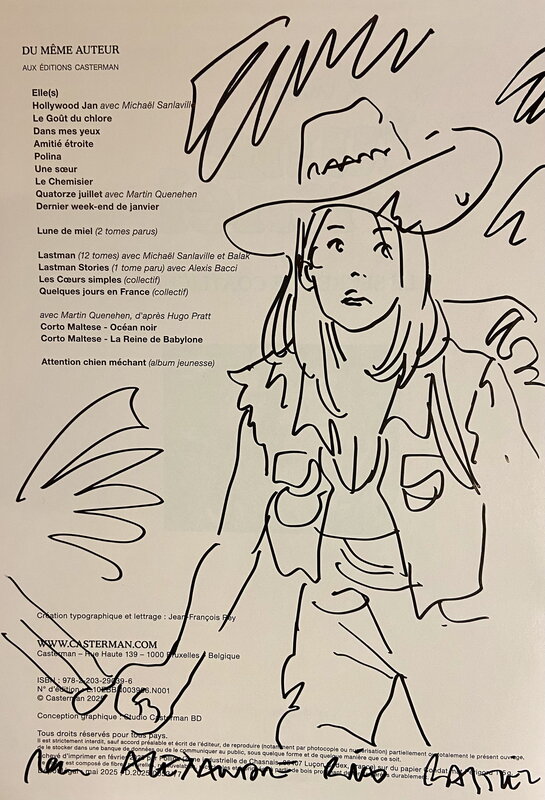 DU MÊME AUTEUR
AUX ÉDITIONS CASTERMAN
Elle(s)
Hollywood Jan avec Michaël Sanlaville
Le Goût du chlore
Dans mes yeux
Amitié étroite
Polina
Une sœur
Le Chemisier
Quatorze juillet avec Martin Quenehen
Dernier week-end de janvier
Lune de miel (2 tomes parus)
Lastman (12 tomes) avec Michaël Sanlaville et Balak
Lastman Stories (1 tome paru) avec Alexis Bacci
Les Cœurs simples (collectif)
Quelques jours en France (collectif)
avec Martin Quenehen, d'après Hugo Pratt
Corto Maltese - Océan noir
Corto Maltese - La Reine de Babylone
Attention chien méchant (album jeunesse)
Création typographique et lettrage : Jean-François Rey
WWW.CASTERMAN.COM
Casterman – Rue Haute 139 – 1000 Bruxelles - Belgique
ISBN : 978-2-203-29
N° d'édition : .N001
© Casterman 2025
Conception graphique : Studio Casterman BD
Tous droits réservés pour tous pays.
Il est strictement interdit, sauf accord préalable et écrit de l'éditeur, de reproduire (notamment par photocopie ou numérisation) partiellement ou totalement le présent ouvrage,
de le stocker dans une banque de données ou de le communiquer au public, sous quelque forme et de quelque manière que ce soit.
Achevé d'imprimer en février
mai 2025
ALEXANDRE